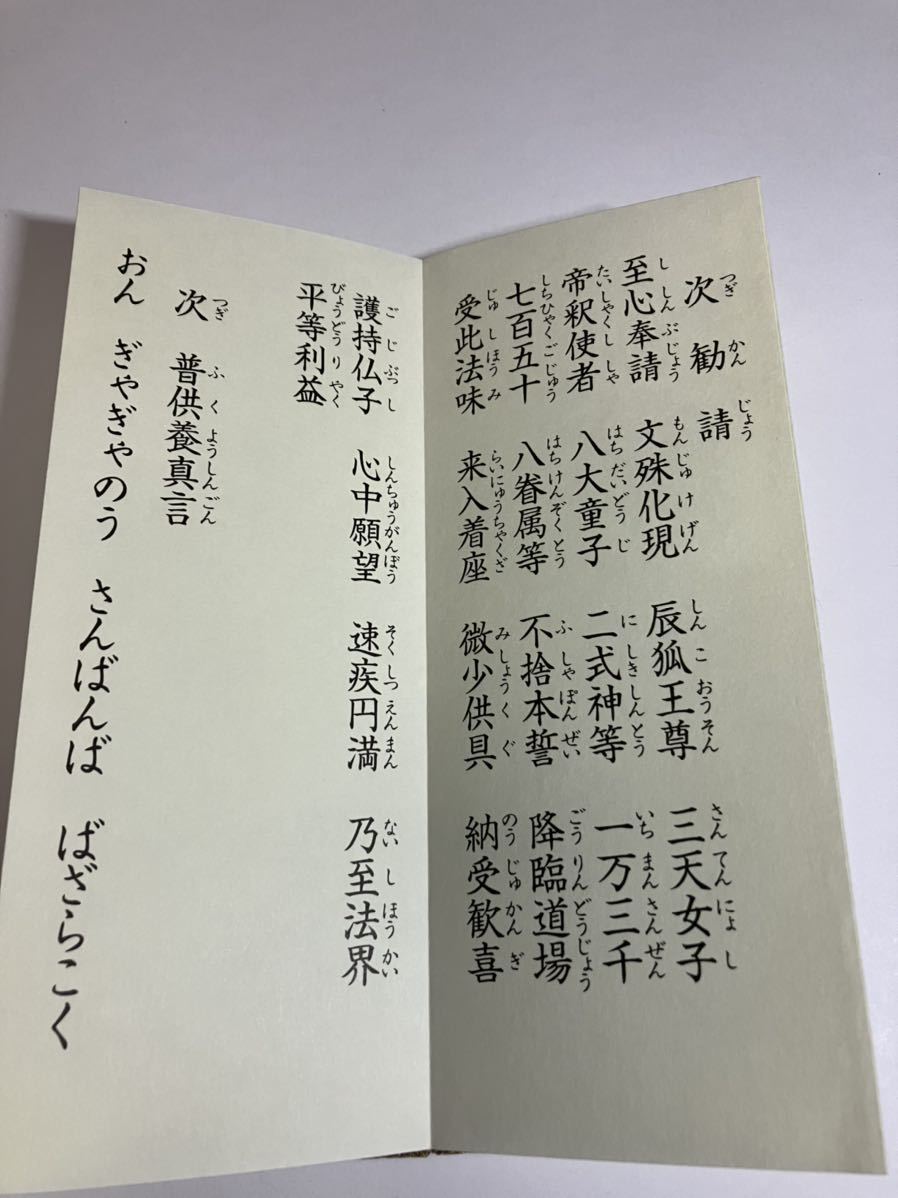 次 勧 請
至心奉請 文殊化現 辰狐王尊 三天女子
帝釈使者 八大童子 二式神等 一万三千
七百五十 八眷属等 不捨本誓 降臨道場
受此法味 来入着座 微少供具 納受歓喜
護持仏子 心中願望 速疾円満 乃至法界
平等利益
次 普供養真言
おん ぎゃぎゃのう さんばんば ばざらこく